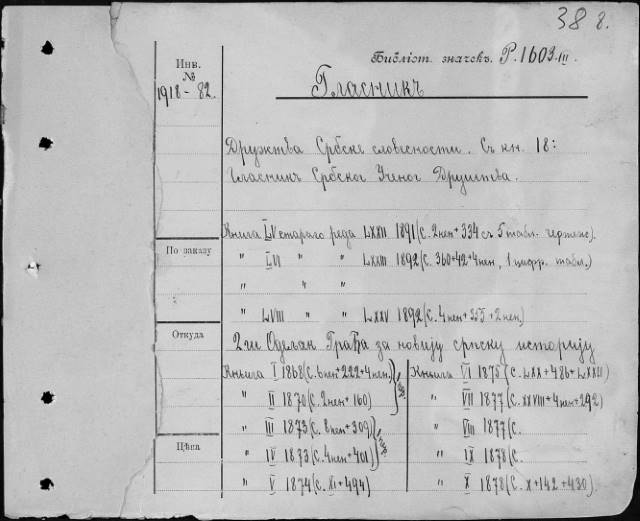 38 г.
Инв. №
1918-82.
Библіот. значекъ. Р. 1603.III.
Гласникъ
Дружтва Србске словесности. Съ кн. 18:
Гласник Србског Ученог Друштва.
Книга LV старага реда LXXII 1891 (с. 2нен+334 съ 5 табл. чертеж.)
По заказу
" LVI " " LXXIII 1892 (с. 360+42+4нен, 1 цифр. табл.)
" " "
" LVIII " " LXXV 1892 (с. 4нен+355+2нен.)
Откуда
2-ги Одељак Грађа за новију српску историју
Књига I 1868 (с. 6нен+222+4нен.)
" II 1870 (с. 2нен+160)
" III 1873 (с. 8нен+309)
" IV 1873 (с. 4нен+401)
" V 1874 (с. XI+494)
Цѣна
Књига VI 1875 (с. LXX+486+LXXII)
" VII 1877 (с. XXVIII+4нен+292)
" VIII 1877 (с.
" IX 1878 (с.
" X 1878 (с. X+142+430)